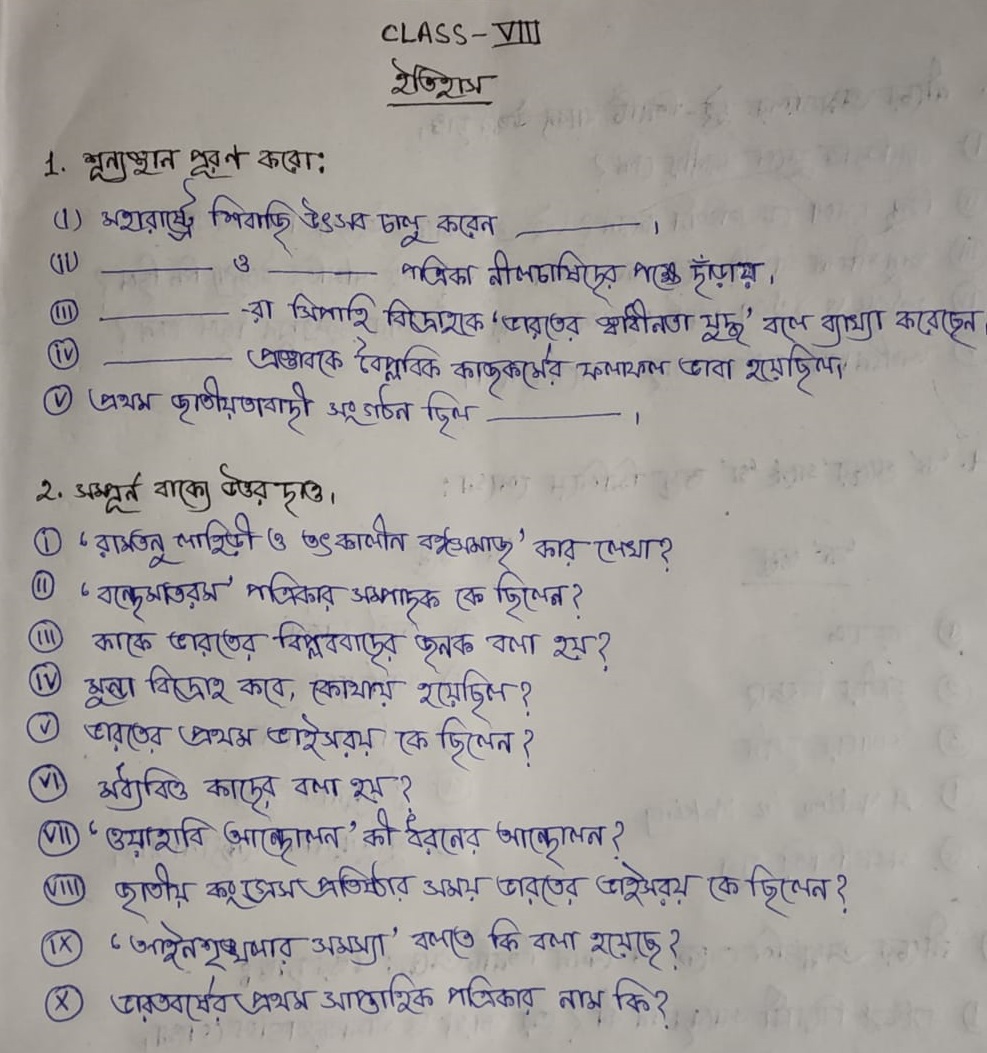 CLASS - VIII
ইতিহাস
1. শূন্যস্থান পূরণ করো:
(i) মহারাষ্ট্রে শিবাজি উৎসব চালু করেন ________ ।
(ii) ________ ও ________ পত্রিকা নীলচাষিদের পক্ষে দাঁড়ায়।
(iii) ________ -রা সিপাহি বিদ্রোহকে 'ভারতের স্বাধীনতা যুদ্ধ' বলে ব্যাখ্যা করেছেন।
(iv) ________ প্রস্তাবকে বৈপ্লবিক কাজকর্মের ফলাফল ভাবা হয়েছিল।
(v) প্রথম জাতীয়তাবাদী সংগঠন ছিল ________ ।
২. সম্পূর্ন বাক্যে উত্তর দাও।
(i) 'রামতনু লাহিড়ী ও তৎকালীন বঙ্গসমাজ' কার লেখা?
(ii) 'বন্দেমাতরম' পত্রিকার সম্পাদক কে ছিলেন?
(iii) কাকে ভারতের বিপ্লববাদের জনক বলা হয়?
(iv) মুন্ডা বিদ্রোহ কবে, কোথায় হয়েছিল?
(v) ভারতের প্রথম ভাইসরয় কে ছিলেন?
(vi) মধ্যবিত্ত কাদের বলা হয়?
(vii) 'ওয়াহাবি আন্দোলন' কী ধরনের আন্দোলন?
(viii) জাতীয় কংগ্রেস প্রতিষ্ঠার সময় ভারতের ভাইসরয় কে ছিলেন?
(ix) 'আইনশৃঙ্খলার সমস্যা' বলতে কি বলা হয়েছে?
(x) ভারতবর্ষের প্রথম সাপ্তাহিক পত্রিকার নাম কি?